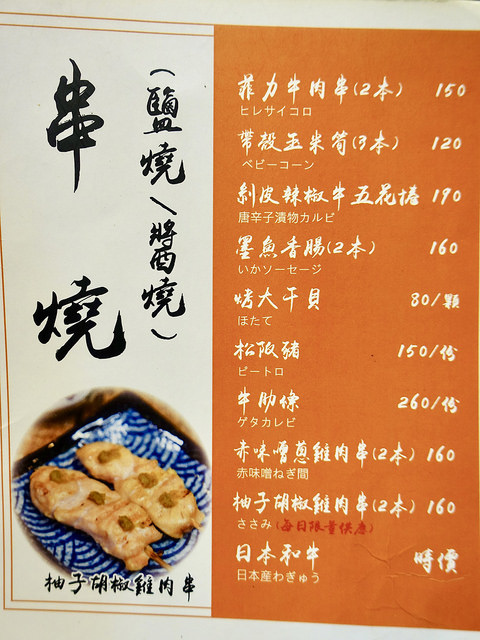 串燒
(鹽燒、醬燒)
菲力牛肉串(2本) 150
ヒレサイコロ
帶殼玉米筍(3本) 120
ベビーコーン
剝皮辣椒牛五花捲 190
唐辛子漬物カルビ
墨魚香腸(2本) 160
いかソーセージ
烤大干貝 80/顆
ほたて
松阪豬 150/份
ピートロ
牛肋條 260/份
ゲタカレビ
赤味噌蔥雞肉串(2本) 160
赤味噌ねぎ間
柚子胡椒雞肉串(2本) 160
ささみ(每日限量供應)
日本和牛 時價
日本産わぎゅう
柚子胡椒雞肉串